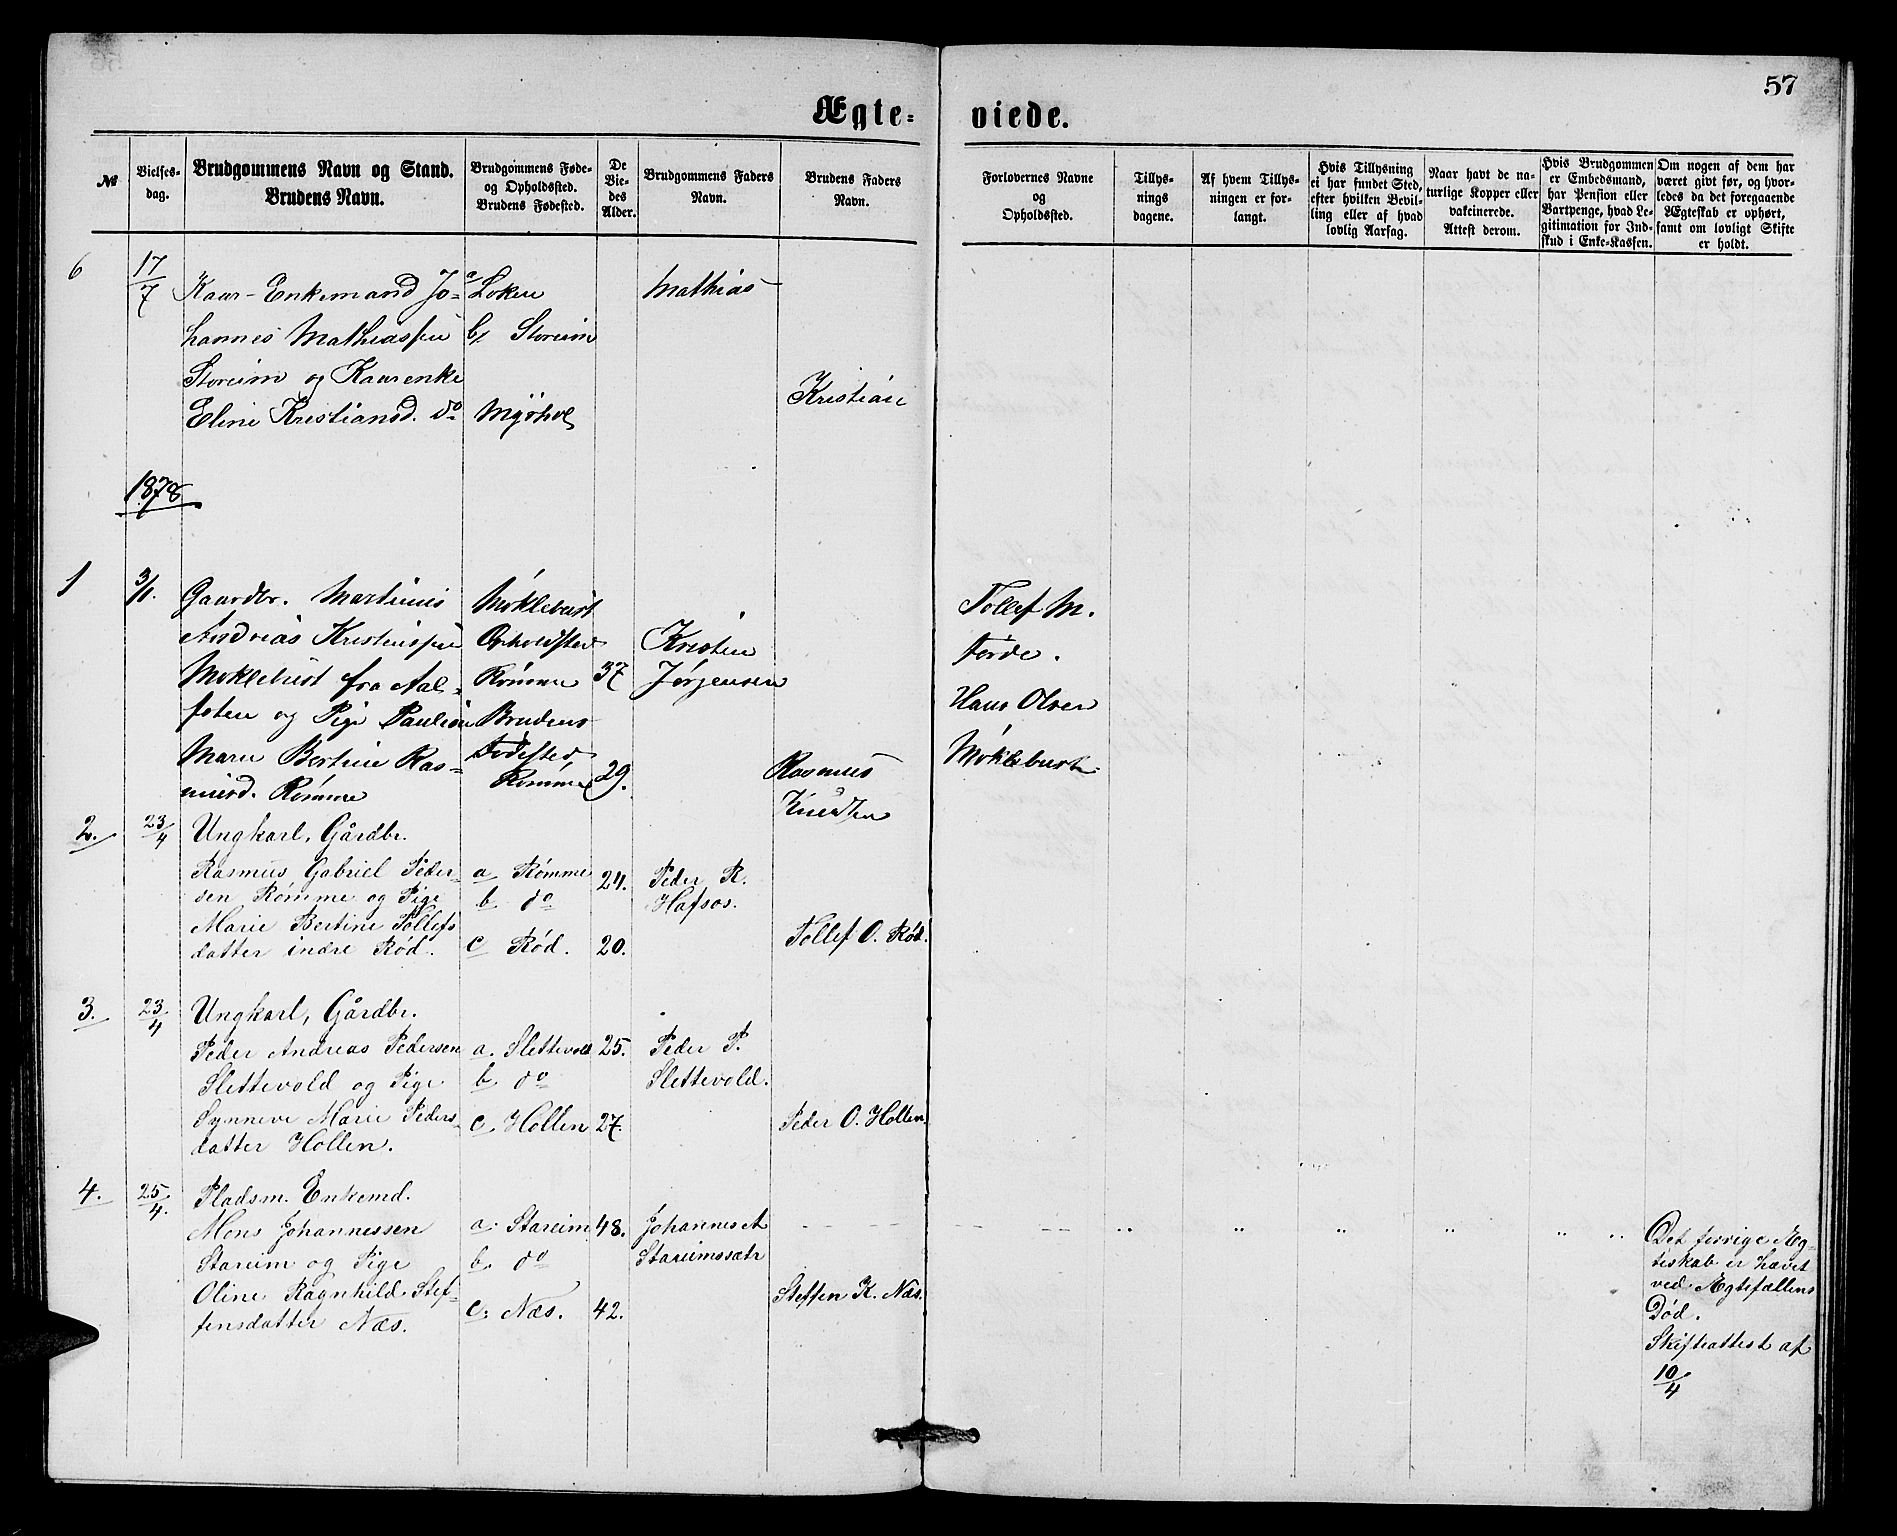 57
Ægte-
viede.
№
Vielses-
dag.
Brudgommens Navn og Stand.
Brudens Navn.
Brudgommens Føde-
og Opholdssted.
Brudens Fødested.
De
Vie-
des
Alder.
Brudgommens Faders
Navn.
Brudens Faders
Navn.
Forlovernes Navne
og
Opholdssted.
Tillys-
nings
dagene.
Af hvem Tillys-
ningen er for-
langt.
Hvis Tillysning
ei har fundet Sted,
efter hvilken Bevil-
ling eller af hvad
lovlig Aarsag.
Naar havt de na-
turlige Kopper eller
vakcinerede.
Attest derom.
Hvis Brudgommen
er Embedsmand,
har Pension eller
Vartpenge, hvad Le-
gitimation for Ind-
skud i Enke-Kassen.
Om nogen af dem har
været givt før, og hvor-
ledes da det foregaaende
Ægteskab er ophørt,
samt om lovligt Skifte
er holdt.
6
17/7
Kaar-Enkemand Jo-
hannes Mathiassen
Storeim og Kaarenke
Eline Kristiansd. do
a, Loken
b, Storeim
Myrhol
Mathias
Kristian
1878
1
3/1.
Gaardbr. Martinus
Andreas Kristenssen
Moklebust fra Aal-
foten og Pige Pauline
Marie Bertine Ras-
musd. Rømme
Moklebust
Opholdssted
Rømme
Brudens
Fødested
Rømme
37
29.
Kristen
Jørgensen
Rasmus
Knudsen
Tollef M.
Førde.
Hans Olsen
Moklebust
2.
23/4
Ungkarl, Gårdbr.
Rasmus Gabriel Peder-
sen Rømme og Pige
Marie Bertine Tollefs
datter indre Rød.
a Rømme
b do
c Rød.
24.
20.
Peder R.
Hafsos.
Tollef O. Rød.
3.
23/4
Ungkarl, Gårdbr.
Peder Andreas Pedersen
Slettevold og Pige
Synneve Marie Peders-
datter Hollen.
a. Slettevold
b. do
c. Hollen
25.
27.
Peder P.
Slettevold.
Peder O. Hollen.
4.
25/4.
Pladsm. Enkemd.
Mons Johannessen
Stareim og Pige
Oline Ragnhild Stef-
fensdatter Næs.
a. Stareim
b. do
c. Næs.
48.
42.
Johannes A
Stareimssætr
Steffen K. Næs.
Det forrige Æg-
teskab er hævet
ved Ægtefællens
Død.
Skifteattest af
10/4